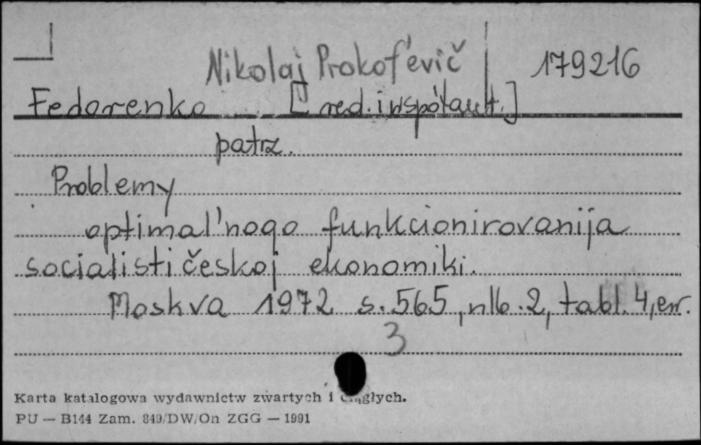 Nikolaj Prokof'evič 179216
Fedorenko [red. i współaut.]
patrz.
Problemy
optimal'nogo funkcionirovanija
socialističeskoj ekonomiki.
Moskva 1972 s. 565, nlb. 2, tabl. 4, err.
3
Karta katalogowa wydawnictw zwartych i ciągłych.
PU — B144 Zam. 849/DW/On ZGG — 1991